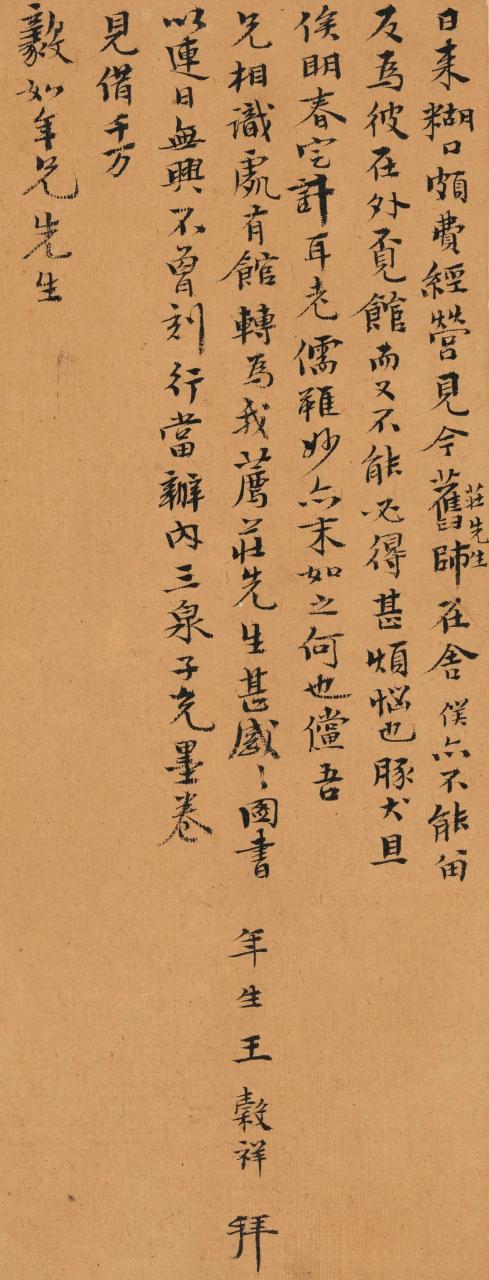 日来糊口頗費經營見今舊師莊先生在舍僕亦不能留
反為彼在外覓館而又不能必得甚煩惱也豚犬且
俟明春定計耳老儒雖妙亦末如之何也儻吾
兄相識處有館轉為我薦莊先生甚感〻圖書
以連日無興不曾刻行當辦內三泉子充墨卷
見借千万
年生王穀祥拜
毅如年兄先生